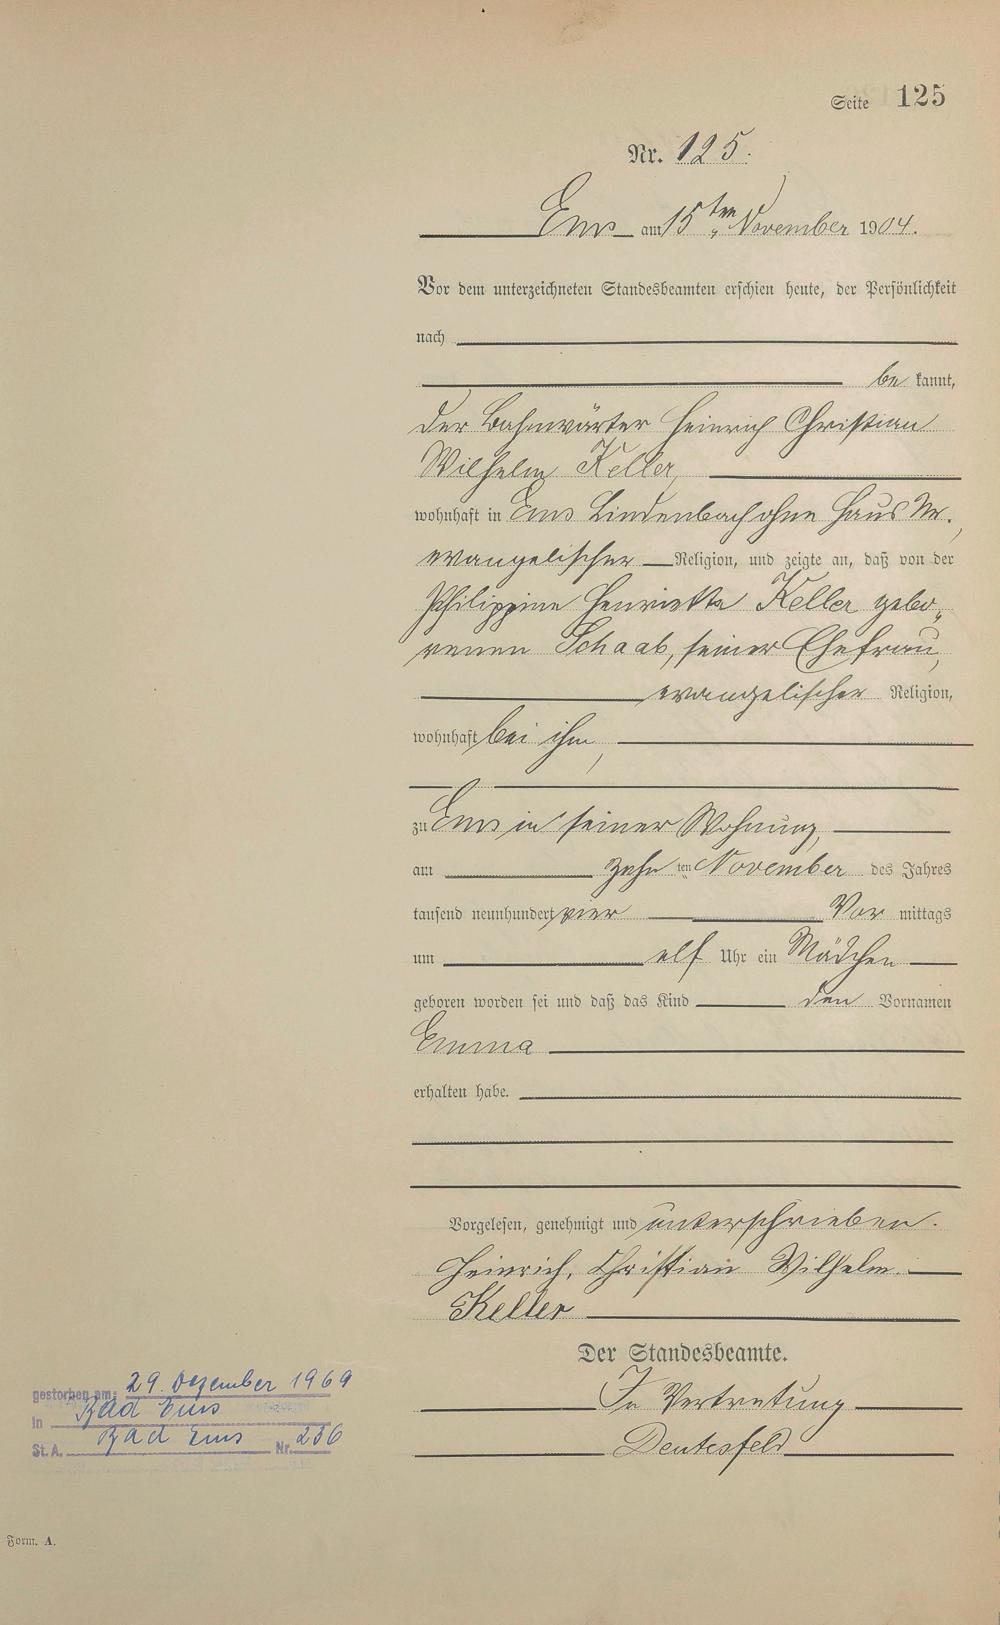 Seite 125
Nr. 125.
Ems am 15ten November 1904.
Vor dem unterzeichneten Standesbeamten erschien heute, der Persönlichkeit
nach
be kannt,
der Bahnwärter Heinrich Christian
Wilhelm Keller,
wohnhaft in Ems Lindenbach ohne Haus Nr.,
evangelischer Religion, und zeigte an, daß von der
Philippine Henriette Keller gebo„
renen Schaab, seiner Ehefrau,
evangelischer Religion,
wohnhaft bei ihm,
zu Ems in seiner Wohnung,
am zehn ten November des Jahres
tausend neunhundert vier Vor mittags
um elf Uhr ein Mädchen
geboren worden sei und daß das Kind den Vornamen
Emma
erhalten habe.
Vorgelesen, genehmigt und unterschrieben.
Heinrich, Christian Wilhelm.
Keller
Der Standesbeamte.
In Vertretung
Deutesfeld
gestorben am: 29. Dezember 1969
in Bad Ems
St. A. Bad Ems Nr. 256
Form. A.